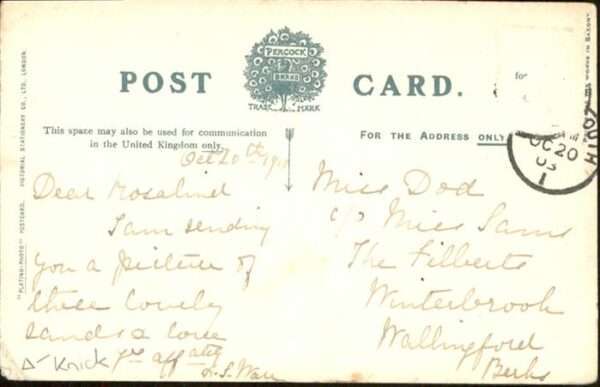 POST CARD.
PEACOCK
BRAND
TRADE MARK
This space may also be used for communication
in the United Kingdom only.
FOR THE ADDRESS ONLY
for
OC 20
03
1
"PLATINO-PHOTO" POSTCARD. PICTORIAL STATIONERY CO., LTD. LONDON.
WORKS IN SAXONY
Oct 20th
Dear Rosalind
I am sending
you a picture of
these lovely
sands & love
yr affately
Knick
Miss Dod
c/o Miss Sams
The Filberts
Winterbrook
Wallingford
Berks